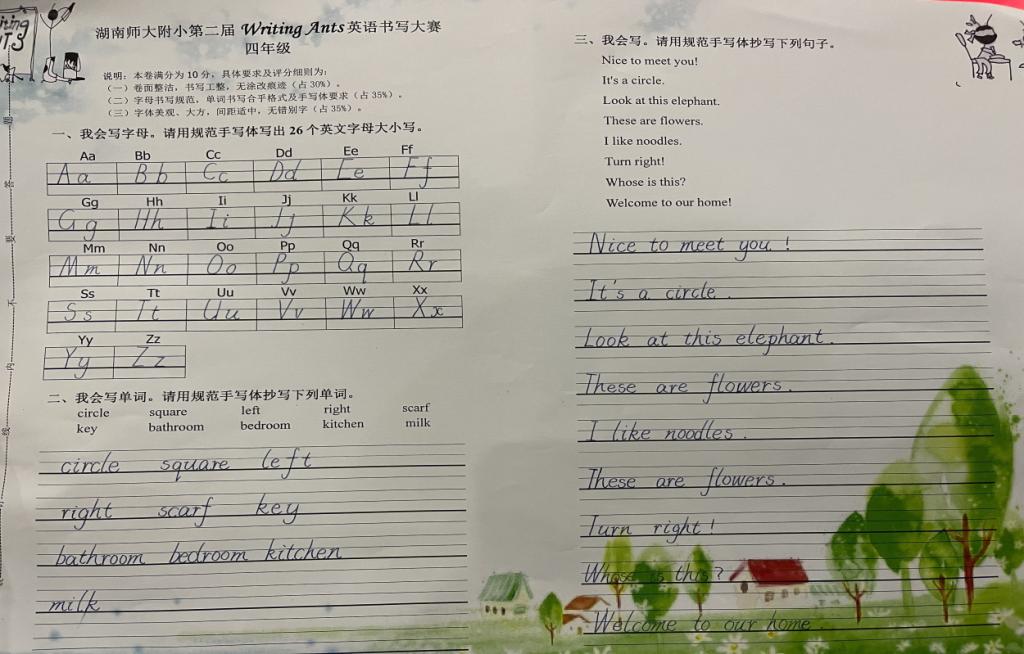 湖南师大附小第二届 Writing Ants 英语书写大赛
四年级
说明：本卷满分为10分，具体要求及评分细则为：
（一）卷面整洁，书写工整，无涂改痕迹（占30%）。
（二）字母书写规范，单词书写合乎格式及手写体要求（占35%）。
（三）字体美观、大方，间距适中，无错别字（占35%）。
一、我会写字母。请用规范手写体写出26个英文字母大小写。
Aa Bb Cc Dd Ee Ff
Aa Bb Cc Dd Ee Ff
Gg Hh Ii Jj Kk Ll
Gg Hh Ii Jj Kk Ll
Mm Nn Oo Pp Qq Rr
Mm Nn Oo Pp Qq Rr
Ss Tt Uu Vv Ww Xx
Ss Tt Uu Vv Ww Xx
Yy Zz
Yy Zz
二、我会写单词。请用规范手写体抄写下列单词。
circle square left right scarf
key bathroom bedroom kitchen milk
circle square left
right scarf key
bathroom bedroom kitchen
milk
三、我会写。请用规范手写体抄写下列句子。
Nice to meet you!
It's a circle.
Look at this elephant.
These are flowers.
I like noodles.
Turn right!
Whose is this?
Welcome to our home!
Nice to meet you !
It's a circle .
Look at this elephant .
These are flowers .
I like noodles .
These are flowers .
Turn right !
Whose is this ?
Welcome to our home .
答
要
不
内
线